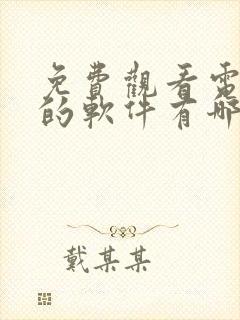 免費觀看電
的軟件有哪
戴某某